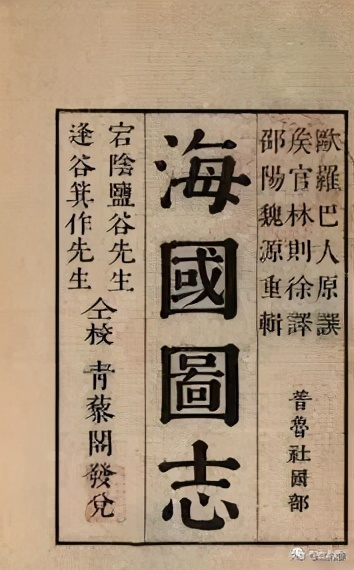 歐羅巴人原譔
矦官林則徐譯
邵陽魏源重輯
普魯社國部
海國圖志
宕陰鹽谷先生
逢谷箕作先生
仝挍
青藜閣發兌